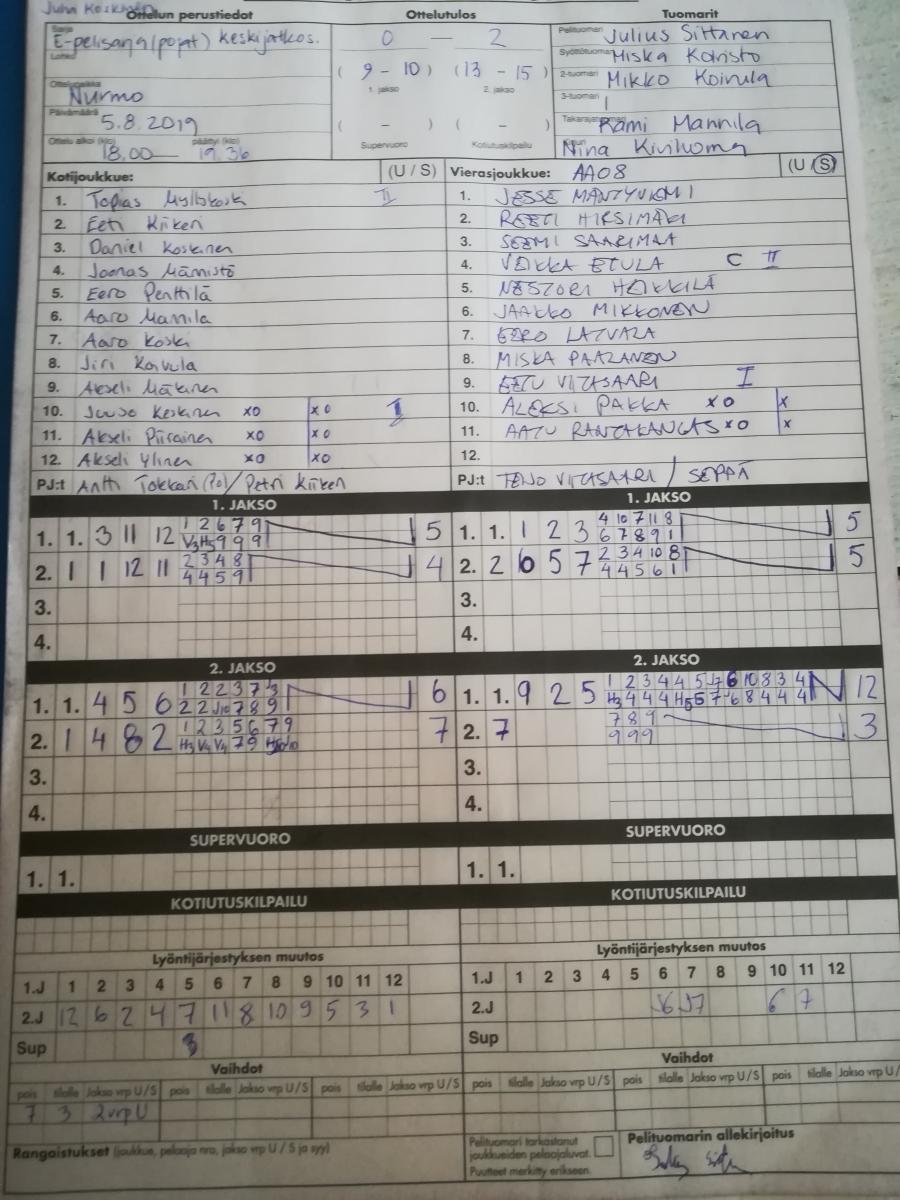 Ottelun perustiedot
Ottelutulos
Tuomarit
Sarja
E-pelisarja (pojat) keskijatkos.
Lohko
Ottelupaikka
Nurmo
Päivämäärä
5.8.2019
Ottelu alkoi (klo) päättyi (klo)
18.00 — 19.36
0 — 2
( 9 - 10 ) ( 13 - 15 )
1. jakso 2. jakso
( - ) ( - )
Supervuoro Kotiutuskilpailu
Pelituomari Julius Sittanen
Syöttötuomari Miska Koivisto
2-tuomari Mikko Koivula
3-tuomari
Takarajatuomari Rami Mannila
Kirjuri Nina Kivihoma
Kotijoukkue: (U / S)
1. Topias Myllykoski II
2. Eeti Kiikeri
3. Daniel Koskinen
4. Joonas Männistö
5. Eero Penttilä
6. Aaro Mannila
7. Aaro Koski
8. Jiri Koivula
9. Akseli Mäkinen
10. Juuso Keskinen xo xo I
11. Akseli Piirainen xo xo
12. Akseli Ylinen xo xo
PJ:t Antti Tokkari (Po) / Petri Kiikeri
Vierasjoukkue: AA08 (U / S)
1. JESSE MÄNTYNIEMI
2. REETI HIRSIMÄKI
3. SEEMI SAARIMAA
4. VEIKKA ETULA C II
5. NESTORI HEIKKILÄ
6. JAAKKO MIKKONEN
7. EERO LATVALA
8. MISKA PAAZANEN
9. EETU VIITASAARI I
10. ALEKSI PAKKA xo x
11. AATU RANTAKANGAS xo x
12.
PJ:t TEIJO VIITASAARI / SEPPÄ
1. JAKSO
1. 1. 3 11 12 1 2 6 7 9 5
V3 H5 9 9 9
2. 1 1 12 11 2 3 4 8 4
4 4 5 9
3.
4.
1. JAKSO
1. 1. 1 2 3 4 10 7 11 8 5
6 7 8 9 1
2. 2 6 5 7 2 3 4 10 8 5
4 4 5 6 1
3.
4.
2. JAKSO
1. 1. 4 5 6 1 2 2 3 7 3 6
2 2 J10 7 8 9
2. 1 4 8 2 1 2 3 5 6 7 9 7
H3 V4 V4 7 9
3.
4.
2. JAKSO
1. 1. 9 2 5 1 2 3 4 4 5 J7 6 10 8 3 4 12
H3 4 4 4 H5 5 7 6 8 4 4 4
2. 7 7 8 9 3
9 9 9
3.
4.
SUPERVUORO
1. 1.
SUPERVUORO
1. 1.
KOTIUTUSKILPAILU
KOTIUTUSKILPAILU
Lyöntijärjestyksen muutos
1.J 1 2 3 4 5 6 7 8 9 10 11 12
2.J 12 6 2 4 7 11 8 10 9 5 3 1
3
Sup
Lyöntijärjestyksen muutos
1.J 1 2 3 4 5 6 7 8 9 10 11 12
2.J J6 J7 6 7
Sup
Vaihdot
pois tilalle Jakso vrp U/S pois tilalle Jakso vrp U/S pois tilalle Jakso vrp U/S
7 3 2vrp U
Vaihdot
pois tilalle Jakso vrp U/S pois tilalle Jakso vrp U/S pois tilalle Jakso vrp U/
Rangaistukset (joukkue, pelaaja nro, jakso vrp U / S ja syy)
Pelituomari tarkastanut
joukkueiden pelaajaluvat.
Puutteet merkitty erikseen.
Pelituomarin allekirjoitus